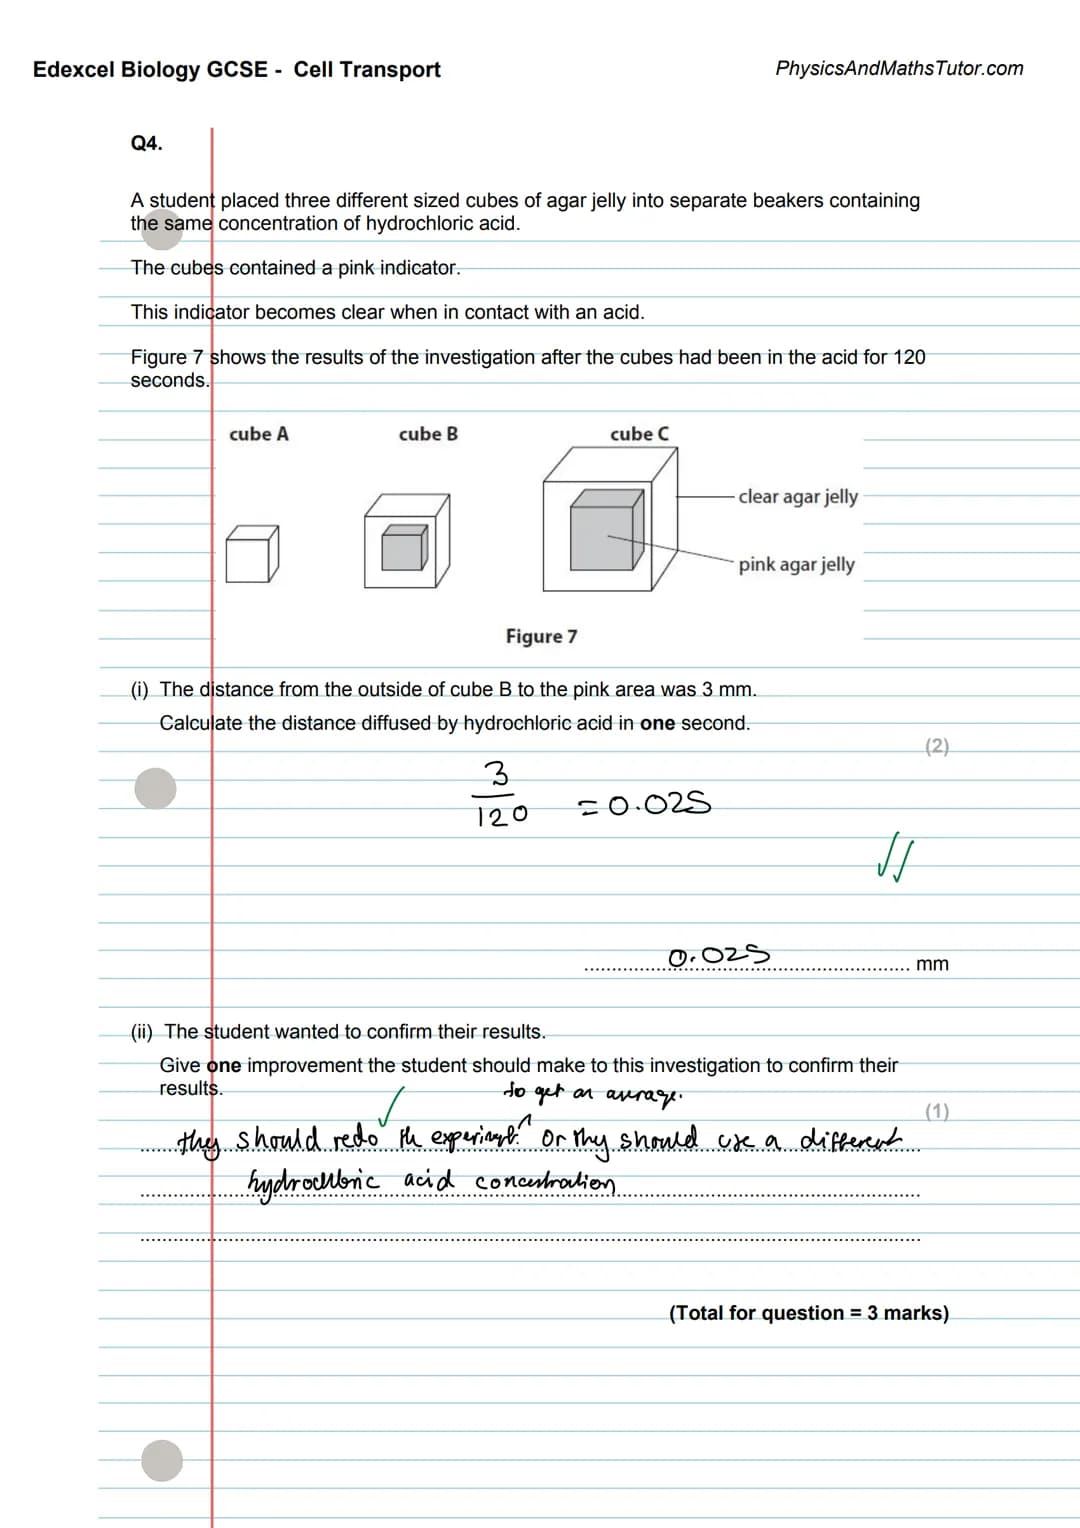 Edexcel Biology GCSE - Cell Transport
PhysicsAndMathsTutor.com
Q4.
A student placed three different sized cubes of agar jelly into separate beakers containing
the same concentration of hydrochloric acid.
The cubes contained a pink indicator.
This indicator becomes clear when in contact with an acid.
Figure 7 shows the results of the investigation after the cubes had been in the acid for 120
seconds.
cube A
cube B
cube C
clear agar jelly
pink agar jelly
Figure 7
(i) The distance from the outside of cube B to the pink area was 3 mm.
Calculate the distance diffused by hydrochloric acid in one second.
(2)
3
120
= 0.025
0.025 mm
(ii) The student wanted to confirm their results.
Give one improvement the student should make to this investigation to confirm their
results.
to get an average.
(1)
they should redo the experiment. or they should use a different
hydrochloric acid concentration
(Total for question = 3 marks)